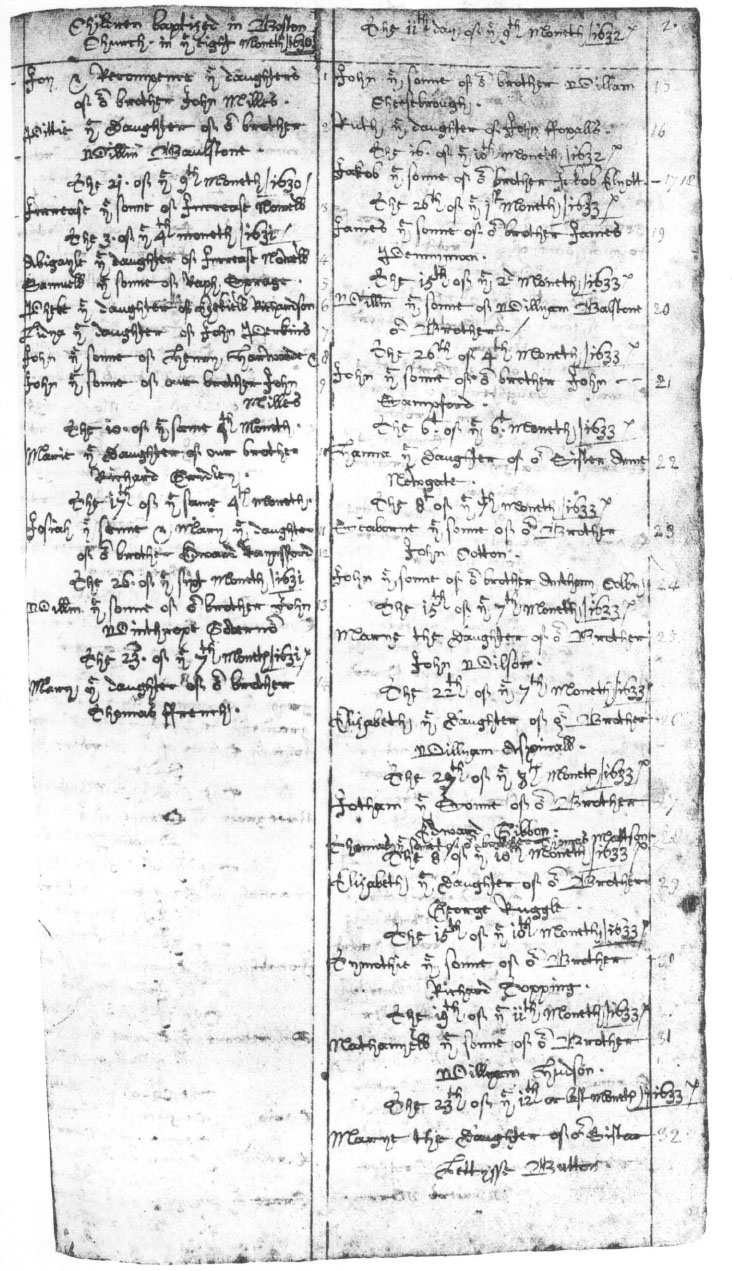 Children baptized in Boston
Church. in yͤ eight Moneth/1630/
Joy & Recompence yͤ daughters 1
of oͬ brother John Milles.
Pittie yͤ Daughter of oͬ brother 2
Willm Baulstone.
The 21. of yͤ 9th Moneth/1630/
Increase yͤ sonne of Increase Nowell 3
The 3. of yͤ 4th moneth/1631/
Abigayle yͤ daughter of Increase Nowell 4
Samuell yͤ sonne of Raph. Sprage. 5
Phebe yͤ daughter of Ezekiell Richardson 6
Edna yͤ daughter of John Perkins 7
John yͤ sonne of Henry Harwoode & 8
John yͤ sonne of our brother John 9
Milles
The 10. of yͤ same 4th Moneth.
Marie yͤ Daughter of our brother
Richard Gridley.
The 17th of yͤ same 4th moneth.
Josiah yͤ sonne & Mary yͤ daughter 11
of oͬ brother Edward Raynsford 12
The 26. of yͤ sixt Moneth/1631
Willm. yͤ sonne of oͬ brother John 13
Winthrope Governoͬ
The 23. of yͤ 7th Moneth/1631/
Mary yͤ daughter of oͬ brother
Thomas Ffrench.
The 11th day. of yͤ 9th Moneth/1632/ 2.
John yͤ sonne of oͬ brother Willam 15
Cheesebrough.
Ruth yͤ daughter of John Ffoxalls. 16
The 16. of yͤ 10th Moneth/1632/
Jakob yͤ sonne of oͬ brother Jakob Eliott. 17 18
The 26th of yͤ 1th Moneth/1633/
James yͤ sonne of oͬ brother James 19
Pennyman.
The 15th of yͤ 2d Moneth/1633
Willm yͤ sonne of Willyam Balstone 20
oͬ Brother./
The 26th of 4th Moneth/1633
John yͤ sonne of oͬ brother John -- 21
Sampford.
The 6t. of yͤ 6t. Moneth/1633
Hanna yͤ Daughter of oͬ Sister Anne 22
Newgate.
The 8t of yͤ 7th Moneth/1633
Seaborne yͤ sonne of oͬ Brother 23
John Cotton.
John yͤ sonne of oͬ brother Anthony Colby 24
The 15th of yͤ 7th Moneth/1633
Marye the Daughter of oͬ Brother 25
John Wilson.
The 22th of yͤ 7th Moneth/1633
Elizabeth yͤ Daughter of oͬ Brother 26
Willyam Aspinall.
The 29th of yͤ 7th Moneth/1633
Jotham yͤ Sonne of oͬ Brother 27
Edward Gibbon:
Thomas yͤ sonne of oͬ brother Thomas Mattson 28
The 8 of yͤ 10th Moneth 1633
Elizabeth yͤ Daughter of oͬ Brother 29
George Ruggle.
The 15th of yͤ 10th Moneth/1633
Tymothie yͤ sonne of oͬ Brother 30
Richard Topping.
The 19th of yͤ 11th Moneth/1633
Nathanyell yͤ sonne of oͬ Brother 31
Willyam Hudson.
The 23th of yͤ 12th or last Moneth/1633
Marye the Daughter of oͬ Sister 32
Lettysse Button.